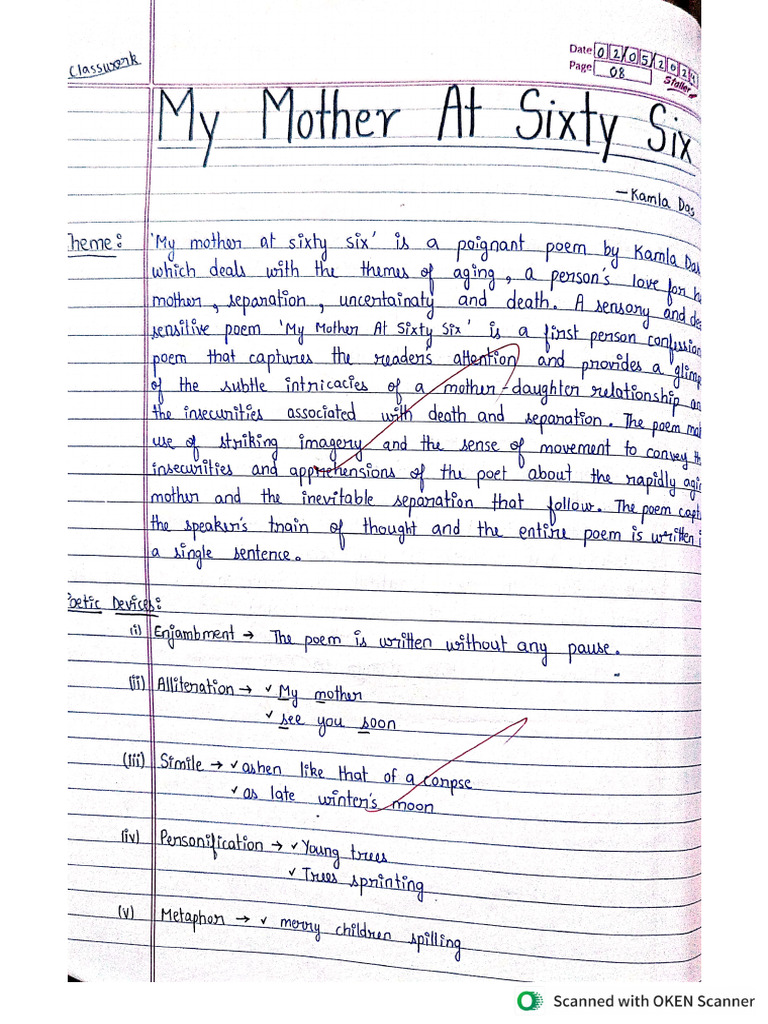 Classwork
Date 02/05/2024
Page 08
My Mother At Sixty Six
– Kamla Das
heme: 'My mother at sixty six' is a poignant poem by Kamla Das
which deals with the themes of aging, a person's love for h
mother, separation, uncertainaty and death. A sensory and de
sensitive poem 'My Mother At Sixty Six' is a first person confession
poem that captures the readers attention and provides a glimp
of the subtle intricacies of a mother-daughter relationship an
the insecurities associated with death and separation. The poem mak
use of striking imagery and the sense of movement to convey th
insecurities and apprehensions of the poet about the rapidly agin
mother and the inevitable separation that follow. The poem captu
the speaker's train of thought and the entire poem is written i
a single sentence.
oetic Devices:
(i) Enjambment → The poem is written without any pause.
(ii) Alliteration → ✓ My mother
✓ see you soon
(iii) Simile → ✓ ashen like that of a corpse
✓ as late winter's moon
(iv) Personification → ✓ Young trees
✓ Trees sprinting
(v) Metaphor → ✓ merry children spilling
Scanned with OKEN Scanner